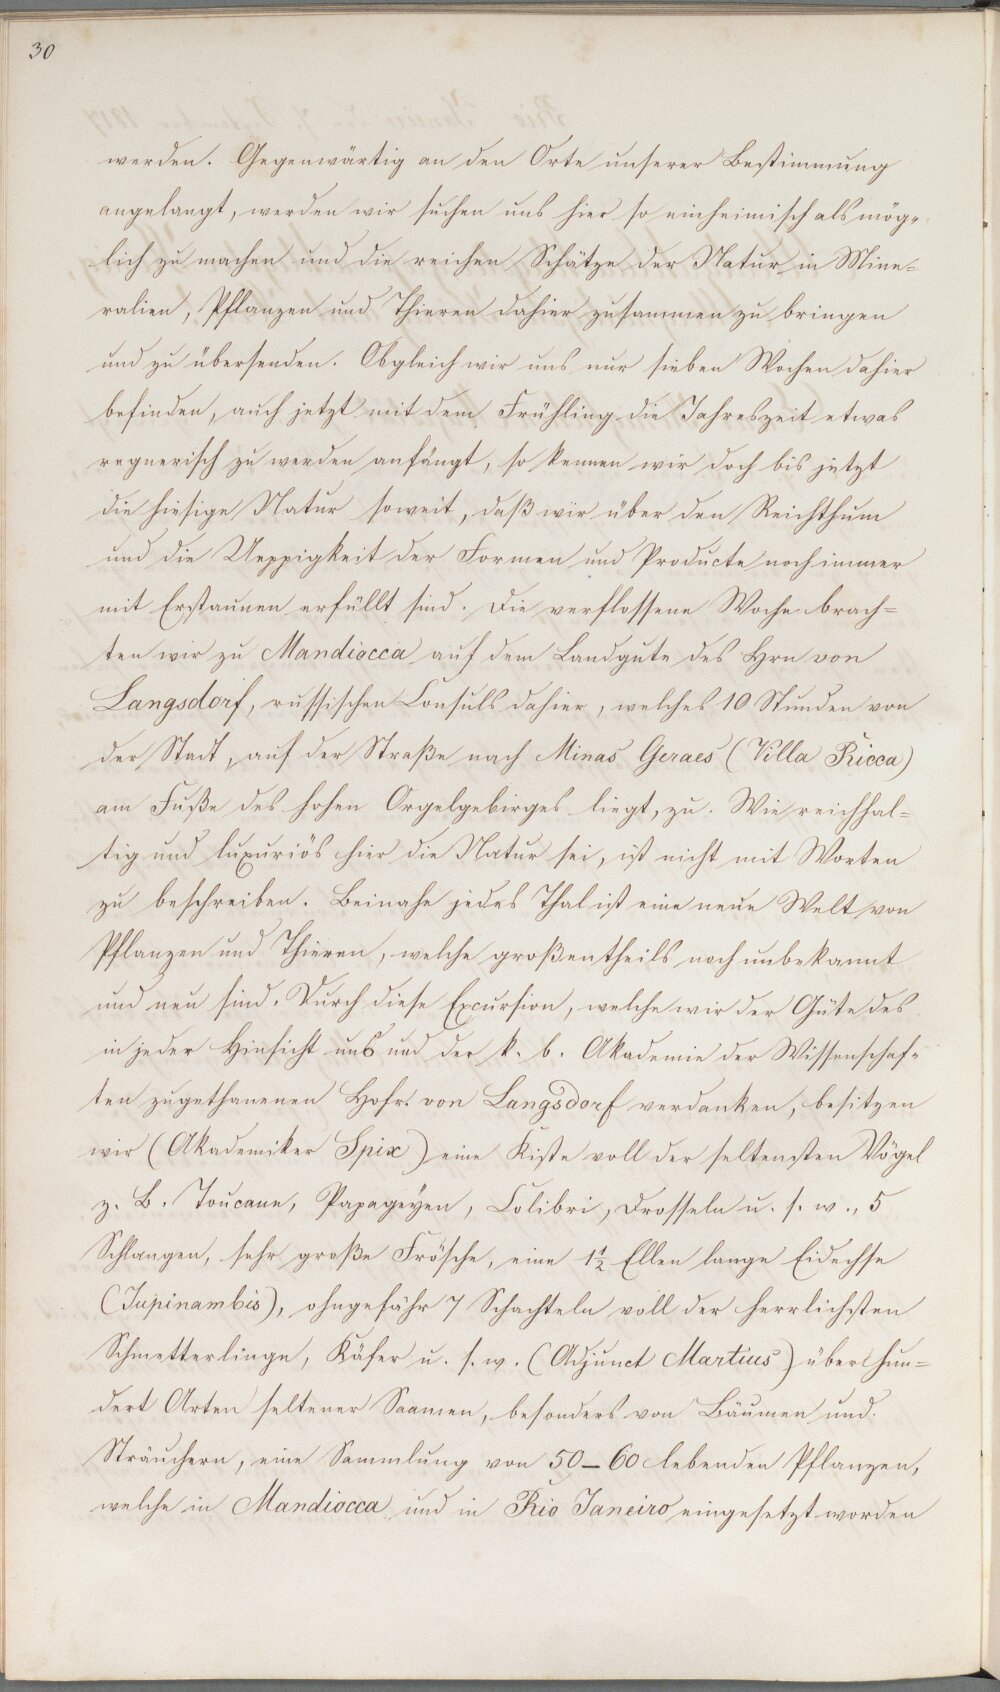 30
werden. Gegenwärtig an den Orte unserer Bestimmung
angelangt, werden wir suchen uns hier so einheimisch als mög-
lich zu machen und die reichen Schätze der Natur in Mine-
ralien, Pflanzen und Thieren dahier zusammen zu bringen
und zu übersenden. Obgleich wir uns nur sieben Wochen dahier
befinden, auch jetzt mit dem Frühling die Jahreszeit etwas
regnerisch zu werden anfängt, so kennen wir doch bis jetzt
die hiesige Natur soweit, daß wir über den Reichthum
und die Ueppigkeit der Formen und Producte noch immer
mit Erstaunen erfüllt sind. Die verflossene Woche brach-
ten wir zu Mandiocca auf dem Landgute des Hrn von
Langsdorf, russischen Consuls dahier, welches 10 Stunden von
der Stadt, auf der Straße nach Minas Geraes (Villa Ricca)
am Fuße des hohen Orgelgebirges liegt, zu. Wie reichhal-
tig und luxuriös hier die Natur sei, ist nicht mit Worten
zu beschreiben. Beinahe jedes Thal ist eine neue Welt von
Pflanzen und Thieren, welche großentheils noch unbekannt
und neu sind. Durch diese Excursion, welche wir der Güte des
in jeder Hinsicht uns und der k. b. Akademie der Wissenschaf-
ten zugethanenen Hofr. von Langsdorf verdanken, besitzen
wir (Akademiker Spix) eine Kiste voll der seltensten Vögel
z. B. Toucane, Papageyen, Colibri, Drosseln u. s. w., 5
Schlangen, sehr große Frösche, eine 1½ Ellen lange Eidechse
(Tupinambis), ohngefähr 7 Schachteln voll der herrlichsten
Schmetterlinge, Käfer u. s. w. (Adjunct Martius) über hun-
dert Arten seltener Saamen, besonders von Bäumen und
Sträuchern, eine Sammlung von 50–60 lebenden Pflanzen,
welche in Mandiocca und in Rio Janeiro eingesetzt worden